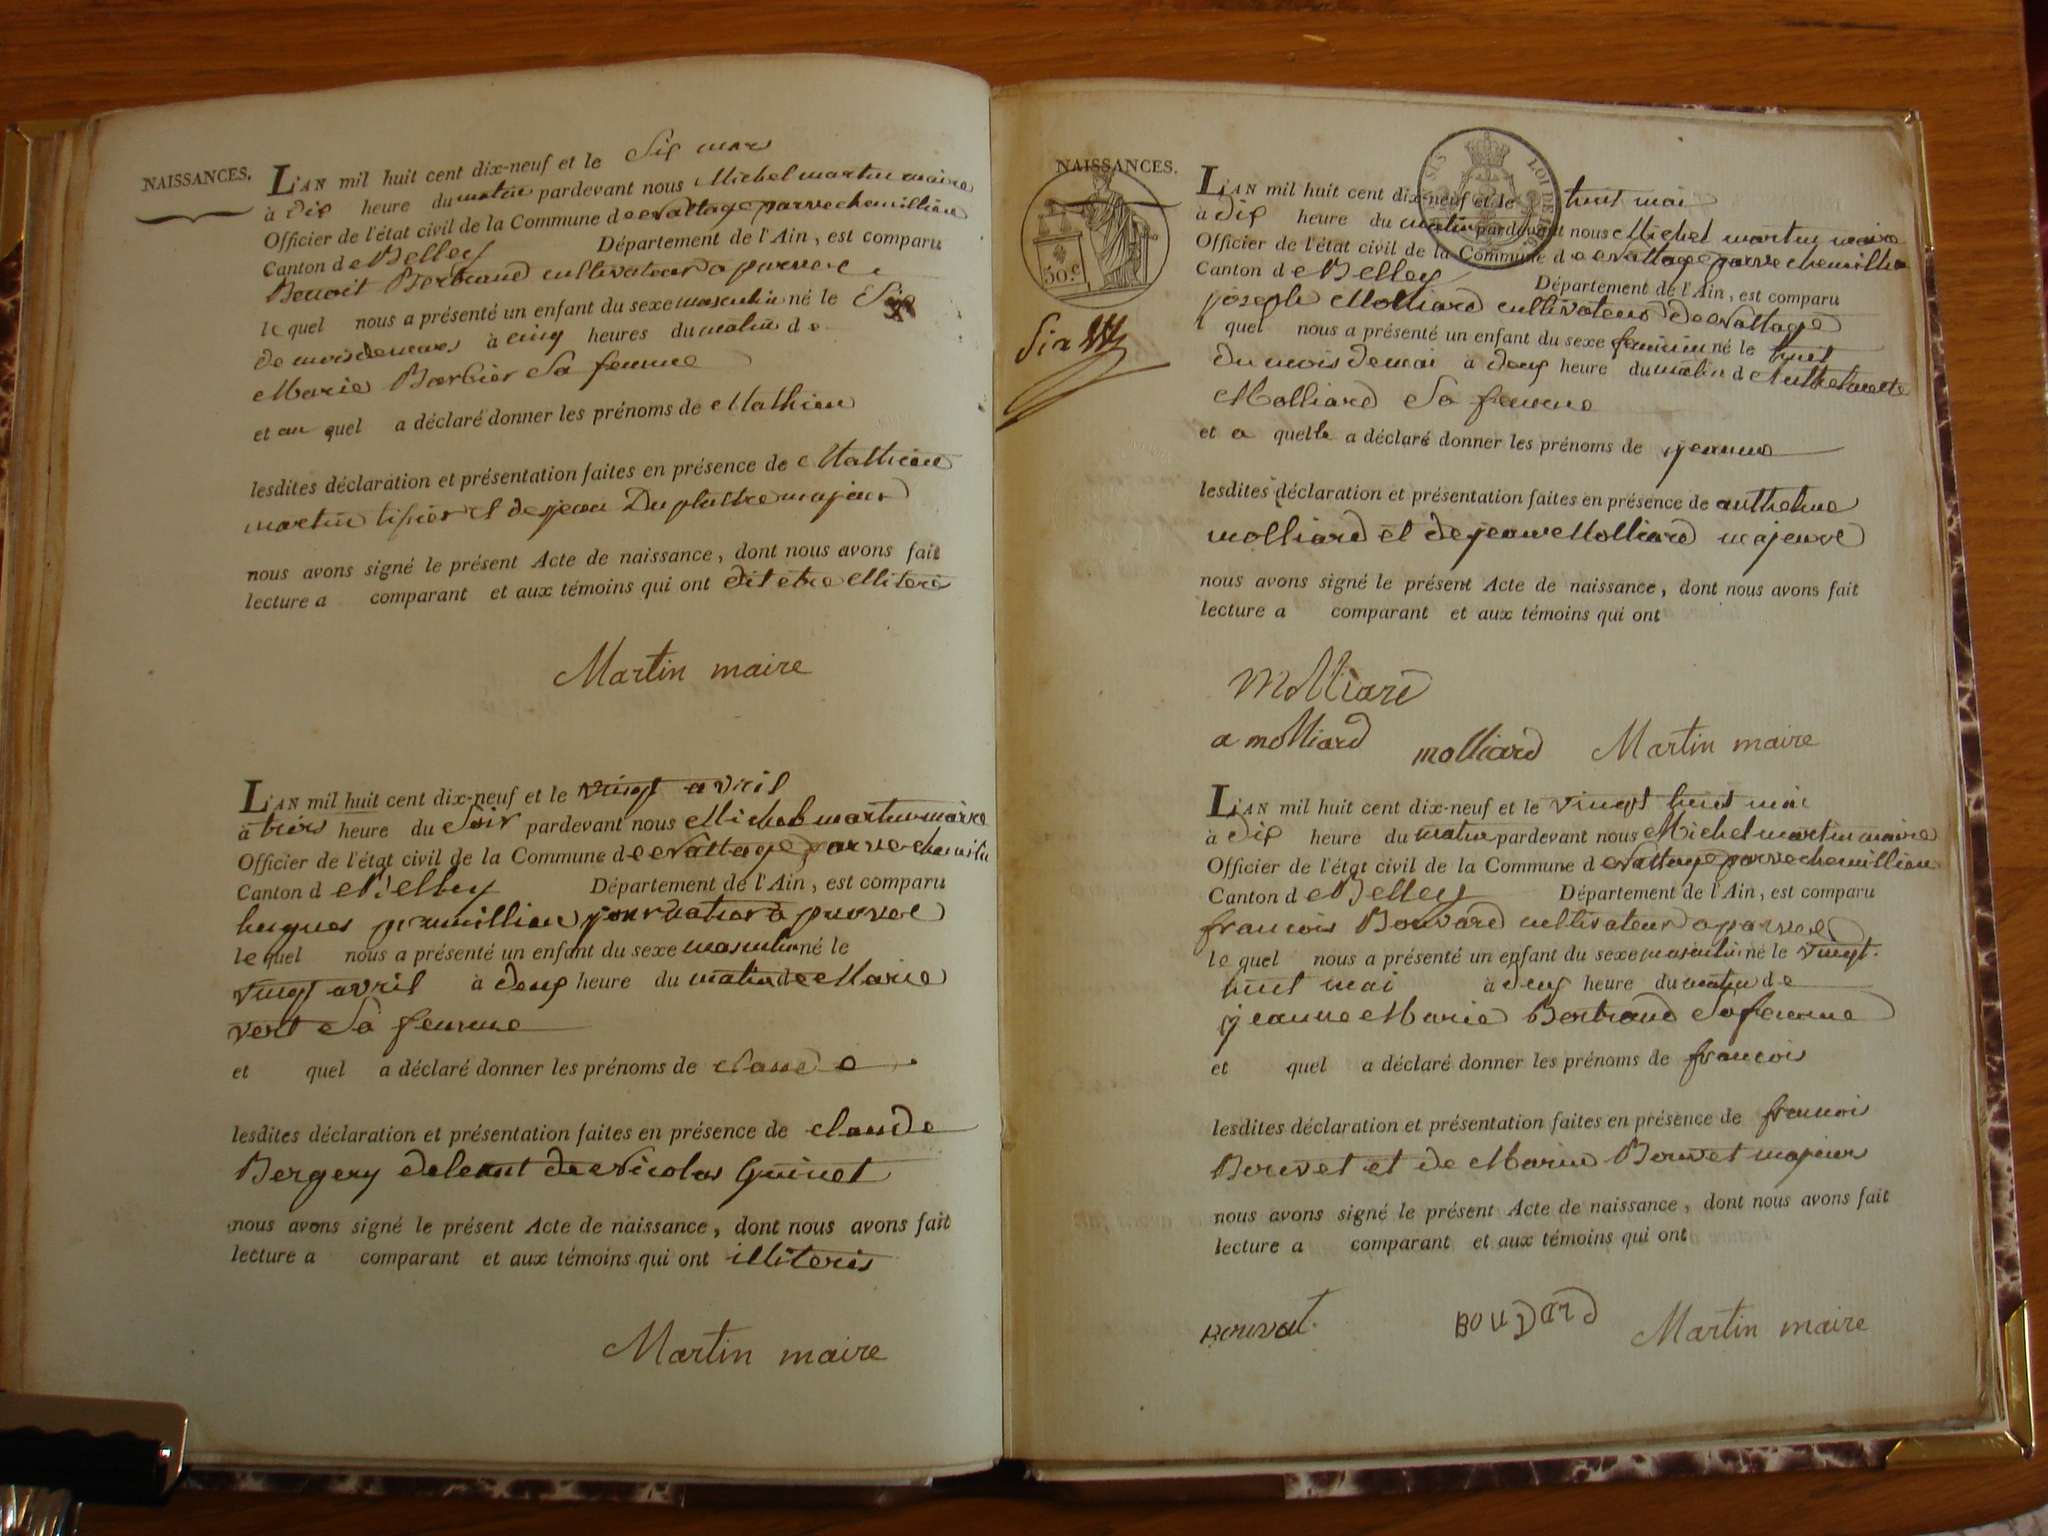 NAISSANCES.
L'AN mil huit cent dix-neuf et le Six mars
à dix heure du matin pardevant nous Michel martin maire
Officier de l'état civil de la Commune de Nattage parve chemillieu
Canton de Belley Département de l'Ain, est comparu
Benoit Bertrand cultivateur a parve
le quel nous a présenté un enfant du sexe masculin né le Six
de mois de mars à cinq heures du matin de
Marie Barbier Sa femme
et au quel a déclaré donner les prénoms de Mathieu
lesdites déclaration et présentation faites en présence de Mathieu
martin et de jean Duplattre majeur
nous avons signé le présent Acte de naissance, dont nous avons fait
lecture a comparant et aux témoins qui ont dit etre illiteré
Martin maire
L'AN mil huit cent dix-neuf et le vingt avril
à trois heure du Soir pardevant nous Michel martin maire
Officier de l'état civil de la Commune de Nattage parve chemillieu
Canton de Belley Département de l'Ain, est comparu
hugues à parve
le quel nous a présenté un enfant du sexe masculin né le
vingt avril à deux heure du matin de Marie
vert Sa femme
et quel a déclaré donner les prénoms de claude
lesdites déclaration et présentation faites en présence de claude
Bergery de Nicolas Guinet
nous avons signé le présent Acte de naissance, dont nous avons fait
lecture a comparant et aux témoins qui ont illiteris
Martin maire
NAISSANCES.
50.c
L'AN mil huit cent dix-neuf et le huit mai
à dix heure du matin pardevant nous Michel martin maire
Officier de l'état civil de la Commune de Nattage parve chemillieu
Canton de Belley Département de l'Ain, est comparu
joseph Molliard cultivateur de Nattage
quel nous a présenté un enfant du sexe feminin né le huit
du mois de mai à deux heure du matin d Anthelmette
Molliard Sa femme
et a quelle a déclaré donner les prénoms de jeanne
lesdites déclaration et présentation faites en présence de anthelme
molliard et de jean Molliard majeure
nous avons signé le présent Acte de naissance, dont nous avons fait
lecture a comparant et aux témoins qui ont
Molliard
a molliard molliard Martin maire
L'AN mil huit cent dix-neuf et le vingt huit mai
à dix heure du matin pardevant nous Michel martin maire
Officier de l'état civil de la Commune de Nattage parve chemillieu
Canton de Belley Département de l'Ain, est comparu
francois Bouvard cultivateur a parve
le quel nous a présenté un enfant du sexe masculin né le vingt
huit mai à deux heure du matin de
jeanne Marie Bertrand Sa femme
et quel a déclaré donner les prénoms de francois
lesdites déclaration et présentation faites en présence de francois
Bouvet et de Marin Bouvet majeur
nous avons signé le présent Acte de naissance, dont nous avons fait
lecture a comparant et aux témoins qui ont
Martin maire